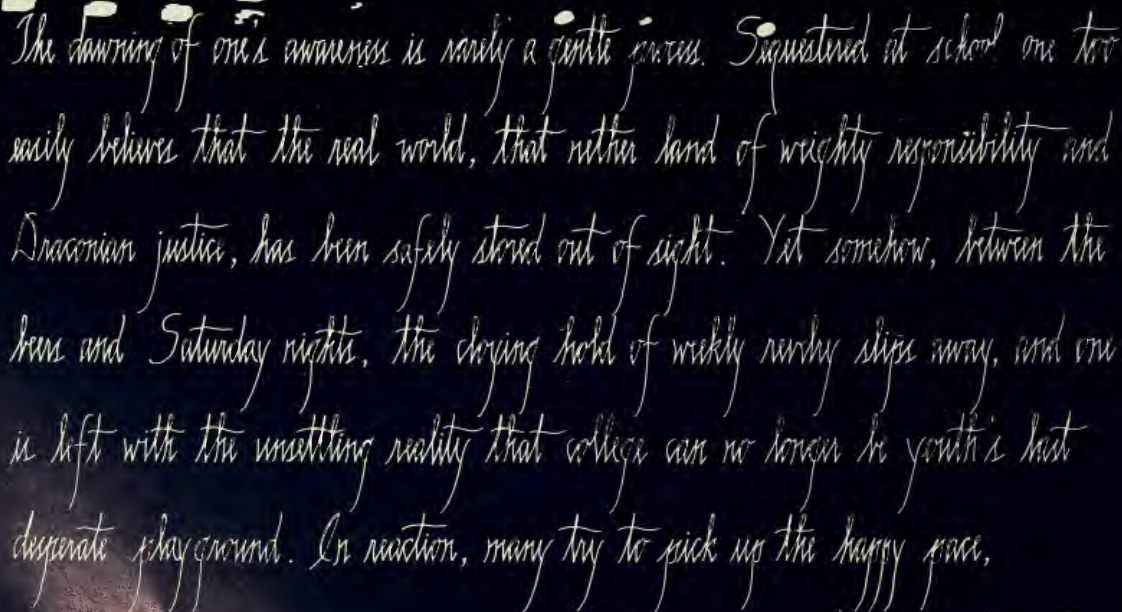 The dawning of one's awareness is rarely a gentle process. Sequestered at school one too
easily believes that the real world, that nether land of weighty responsibility and
Draconian justice, has been safely stored out of sight. Yet somehow, between the
beers and Saturday nights, the cloying hold of weekly revelry slips away, and one
is left with the unsettling reality that college can no longer be youth's last
desperate playground. In reaction, many try to pick up the happy pace,